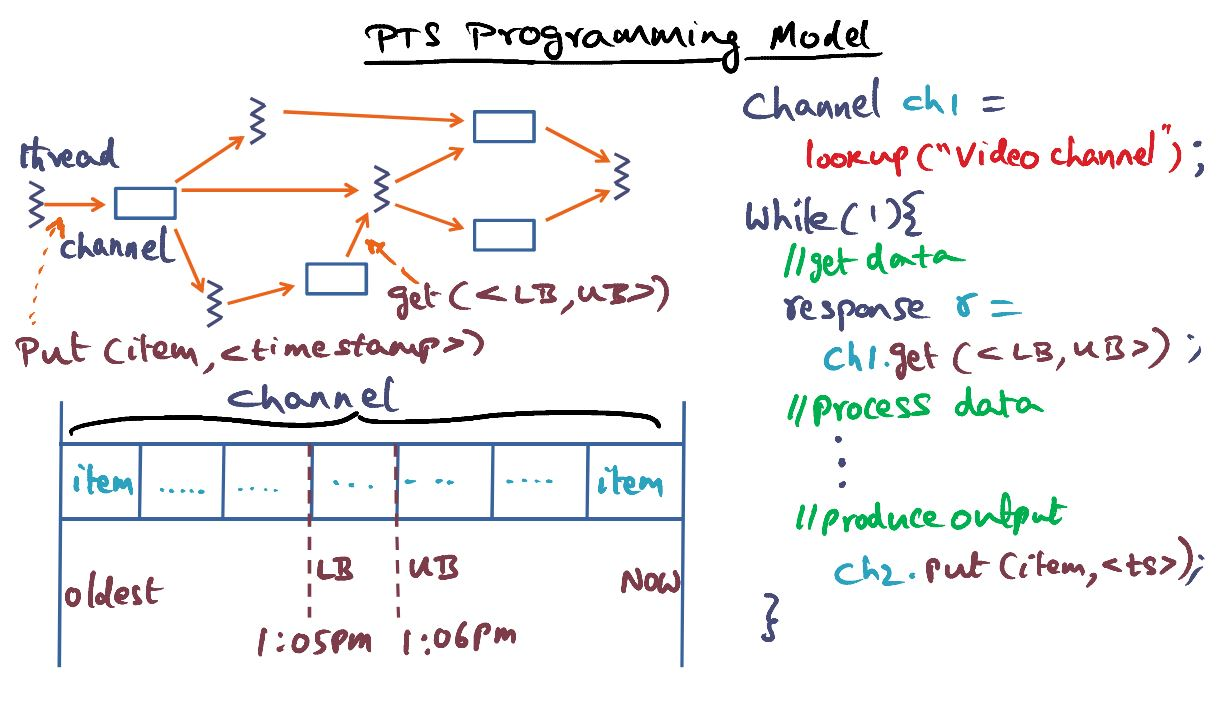 PTS Programming Model
thread
channel
get (<LB,UB>)
Put (item, <timestamp>)
channel
item ..... .... .... ... .... item
LB UB
oldest Now
1:05pm 1:06pm
Channel ch1 =
lookup ("Video channel");
While (1){
//get data
response r =
ch1.get (<LB,UB>);
//Process data
//Produce output
ch2.put (item, <ts>);
}